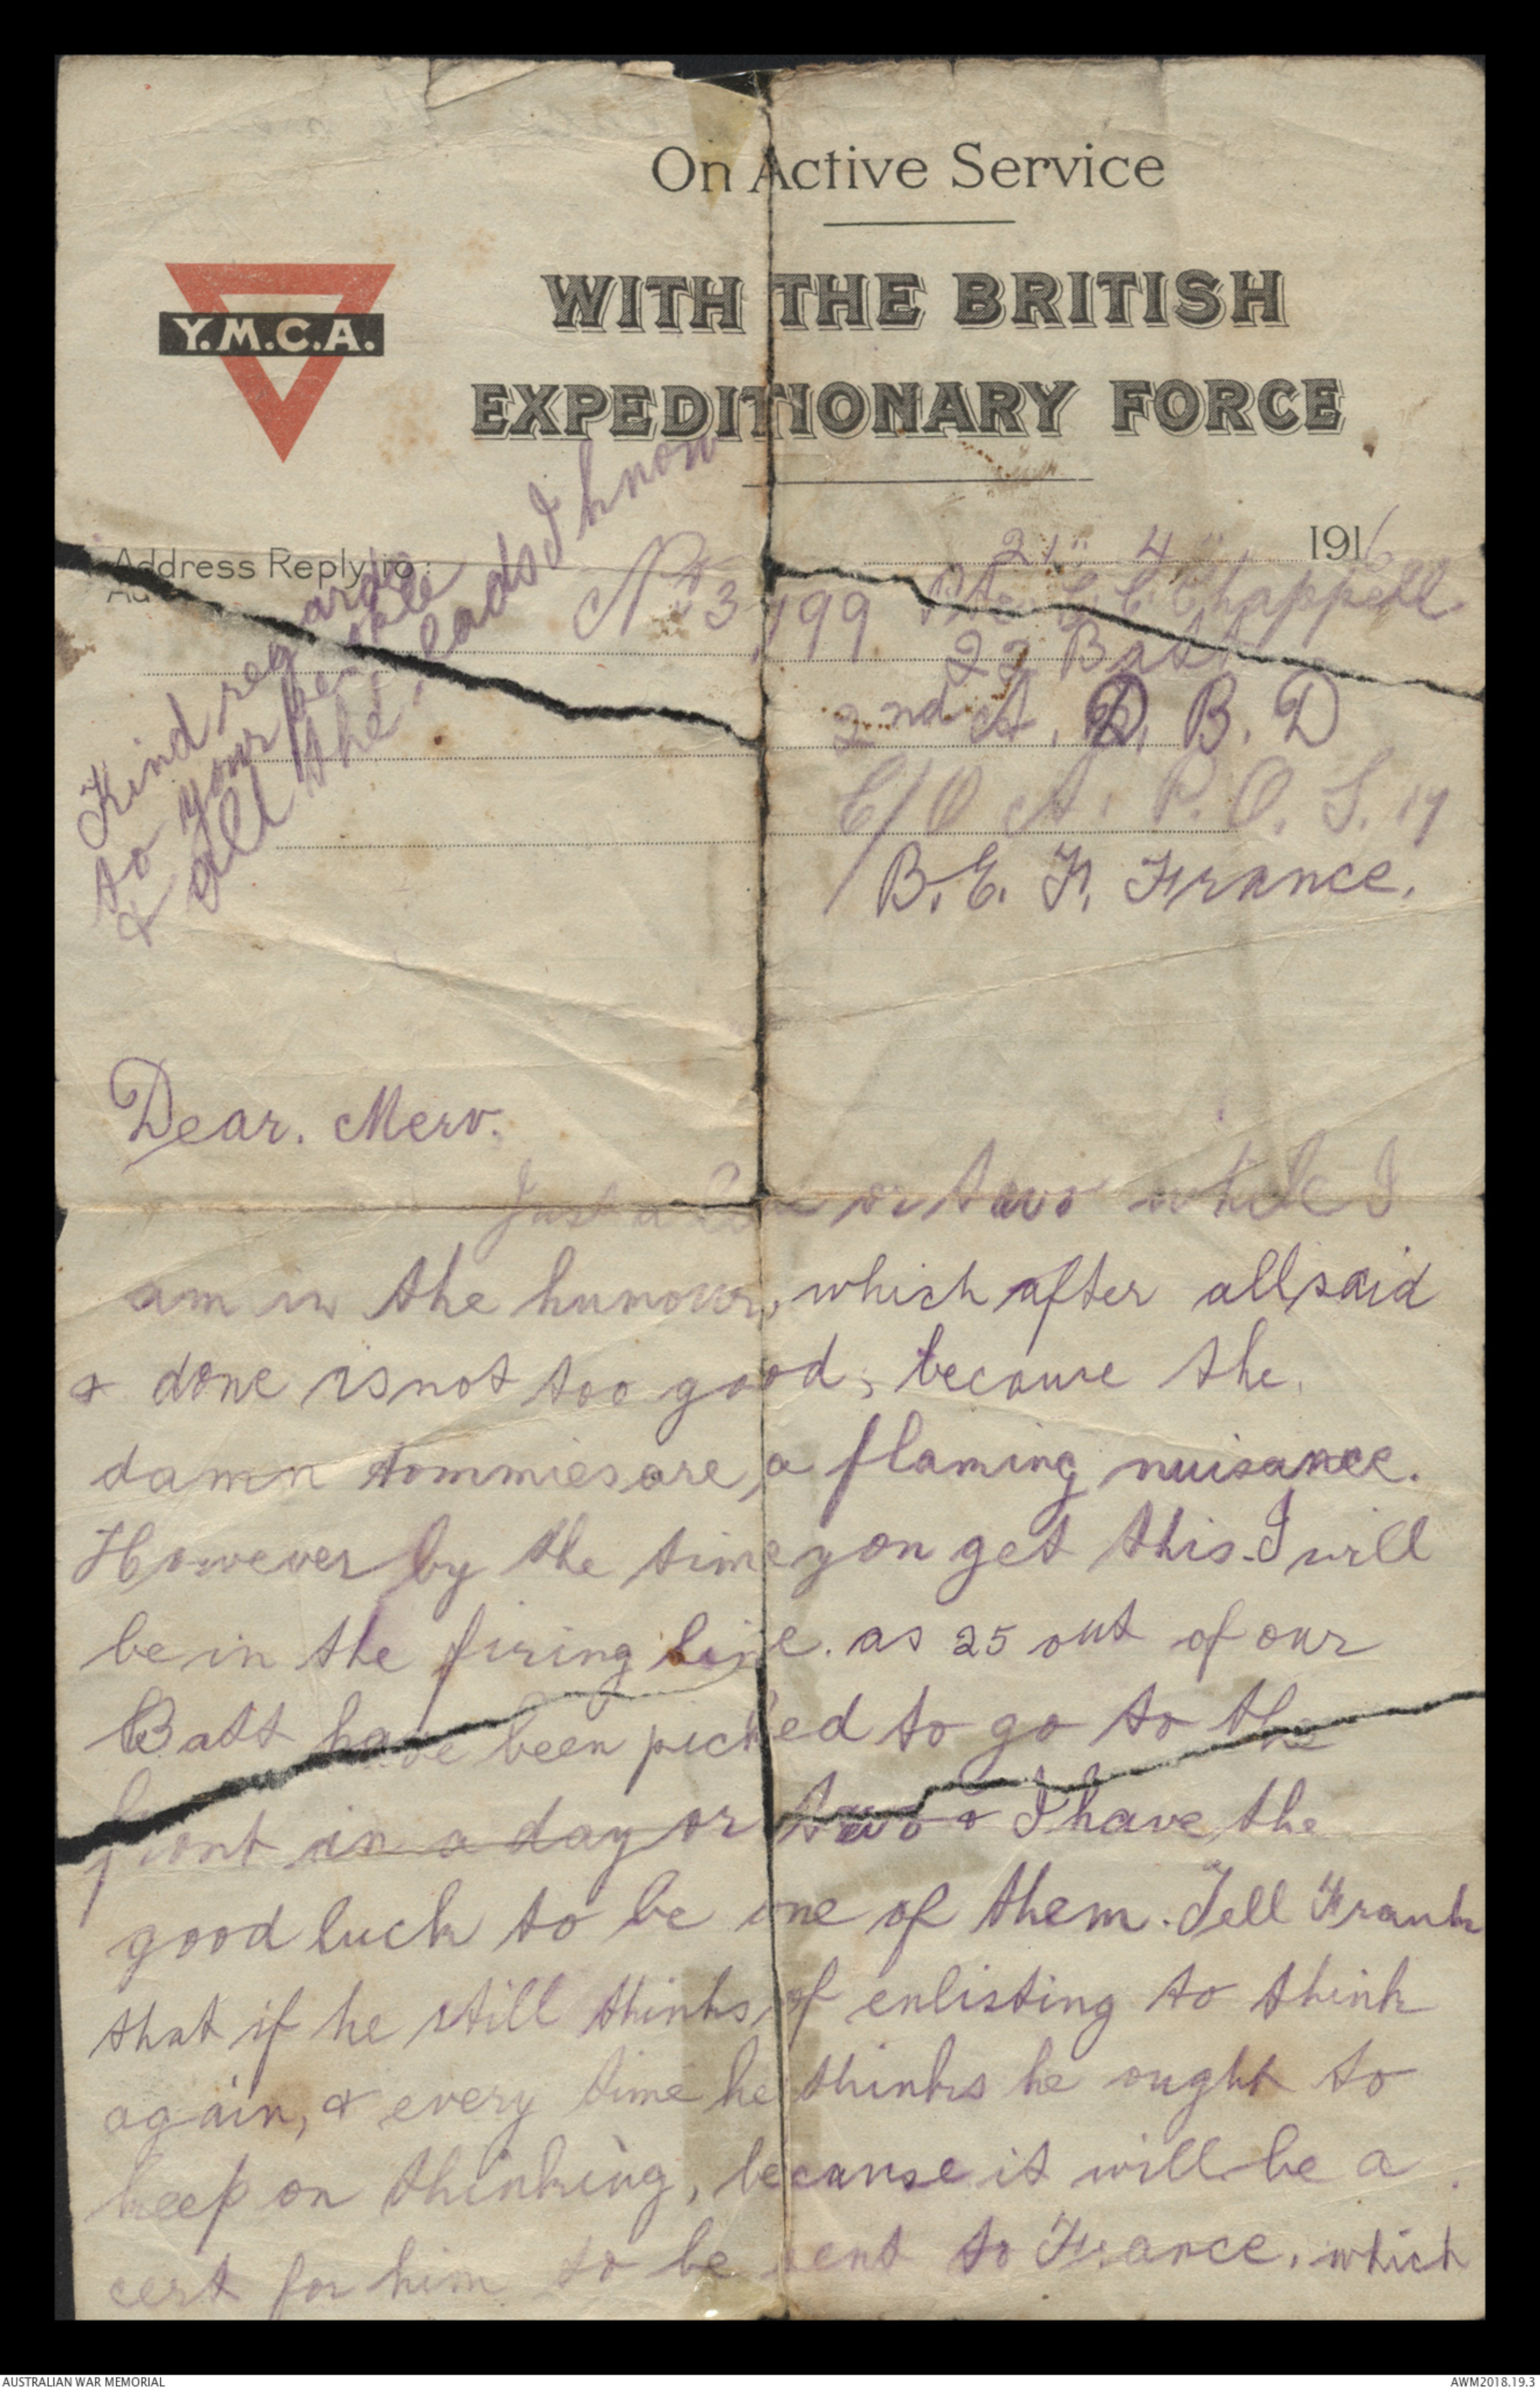 On Active Service
WITH THE BRITISH
EXPEDITIONARY FORCE
Y.M.C.A.
Kind regards
to your people
& all the lads I know
Address Reply to:
21" 4" 1916
No 3799 Pte C. C. Chappell
22 Batt
2nd A. D. B. D
C/O A. P. O. S. 17
B. E. F. France.
Dear. Merv.
Just a line or two while I
am in the humour, which after all said
& done is not too good, because the
damn tommies are a flaming nuisance.
However by the time you get this I will
be in the firing line. as 25 out of our
Batt have been picked to go to the
front in a day or two & I have the
good luck to be one of them. Tell Frank
that if he still thinks of enlisting to think
again, & every time he thinks he ought to
keep on thinking, because it will be a
cert for him to be sent to France, which
AUSTRALIAN WAR MEMORIAL
AWM2018.19.3